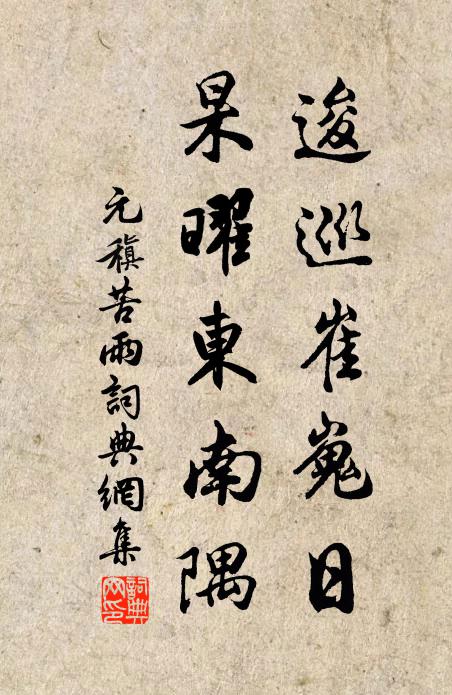 逡巡崔嵬日
杲曜東南隅
元稹苦雨詞典網集
詞典網印